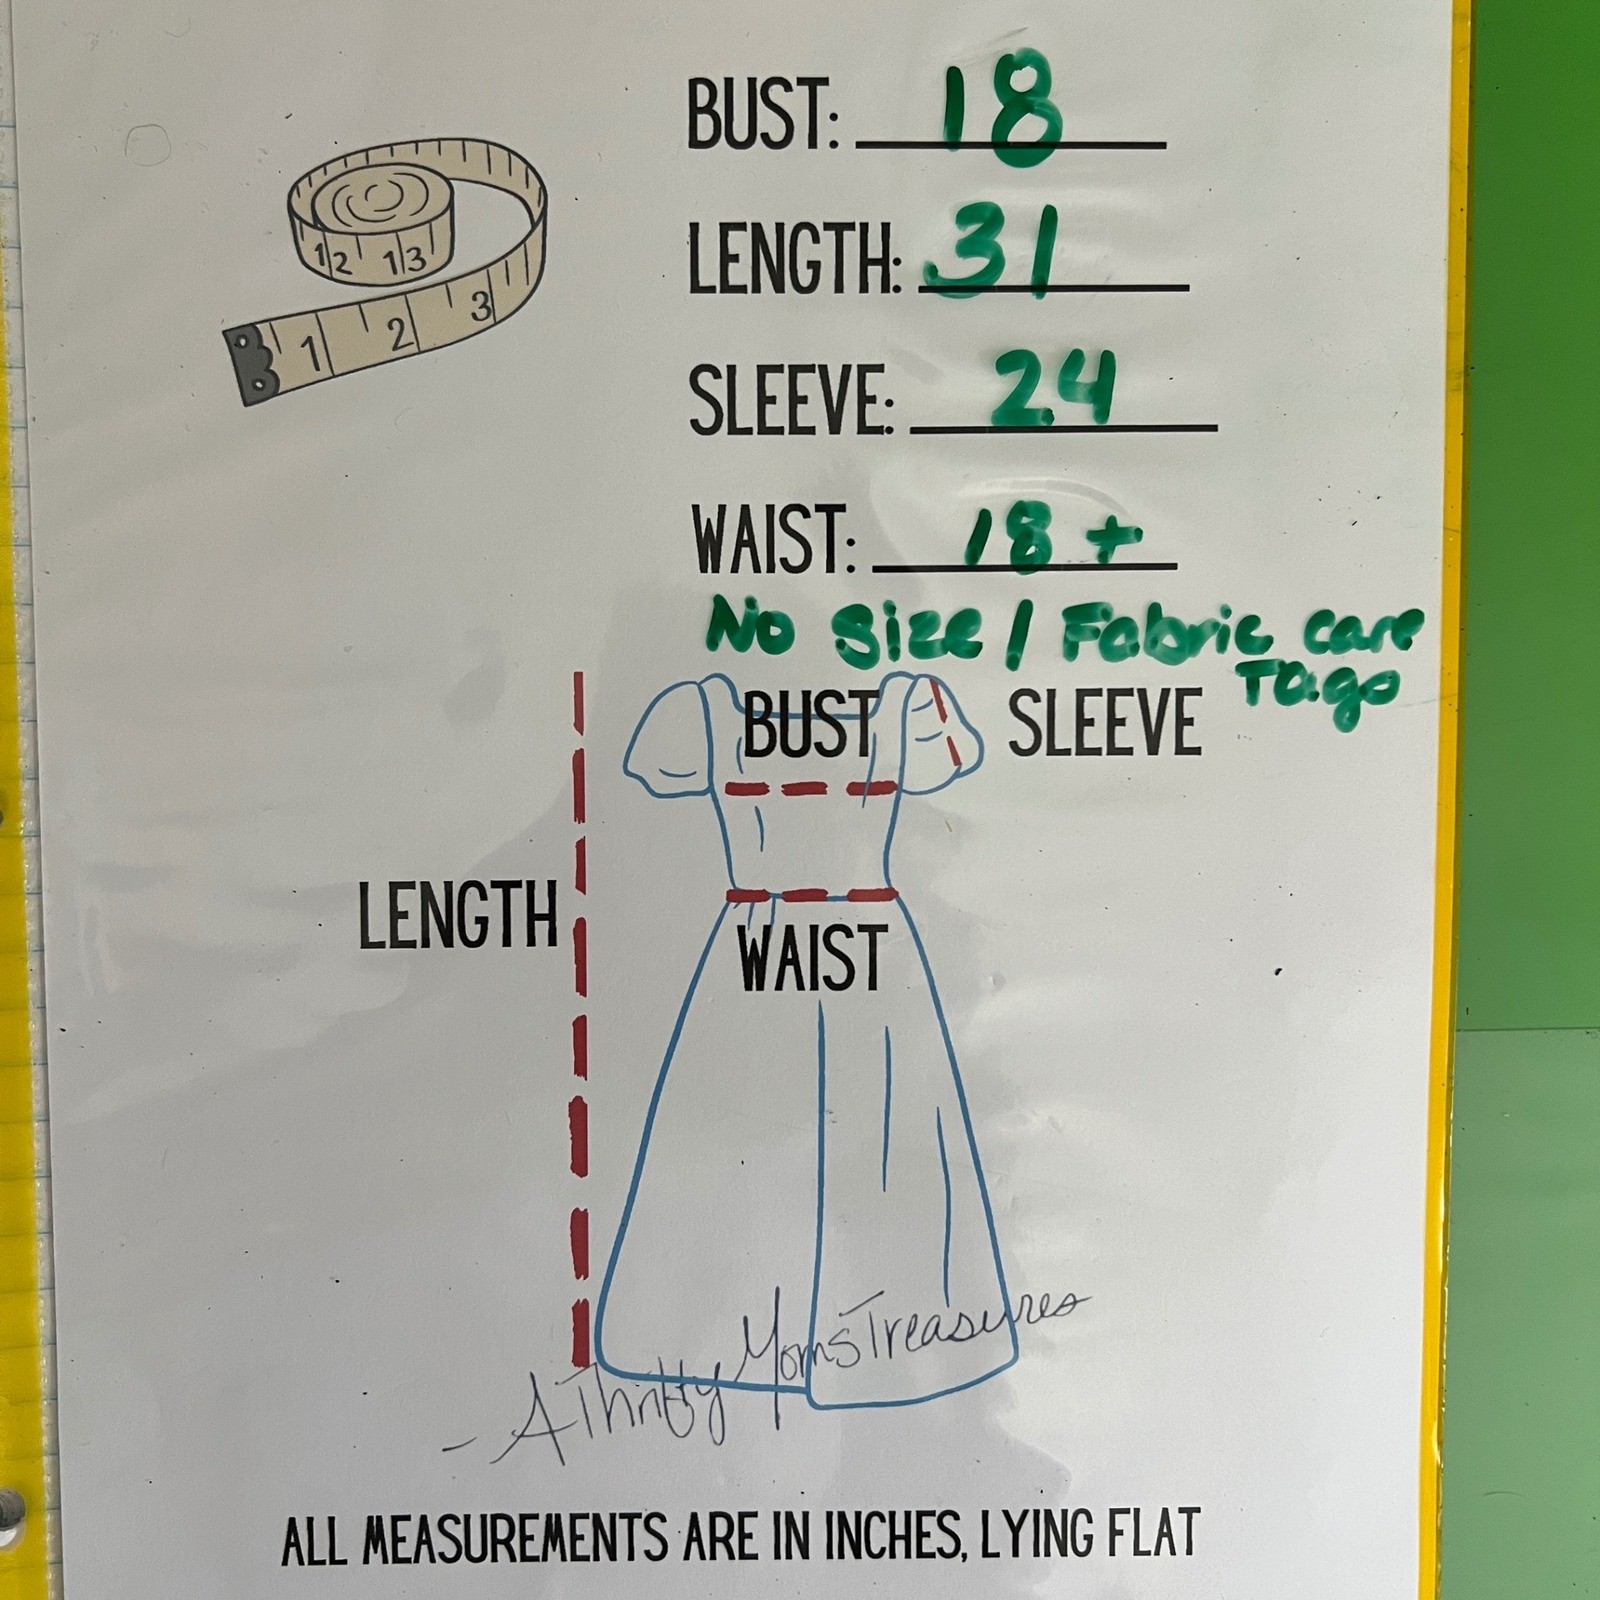 BUST: 18
LENGTH: 31
SLEEVE: 24
WAIST: 18 +
No Size / Fabric care
TO.go
12 13
1 2 3
BUST
SLEEVE
LENGTH
WAIST
- AThriftyMomsTreasures
ALL MEASUREMENTS ARE IN INCHES, LYING FLAT